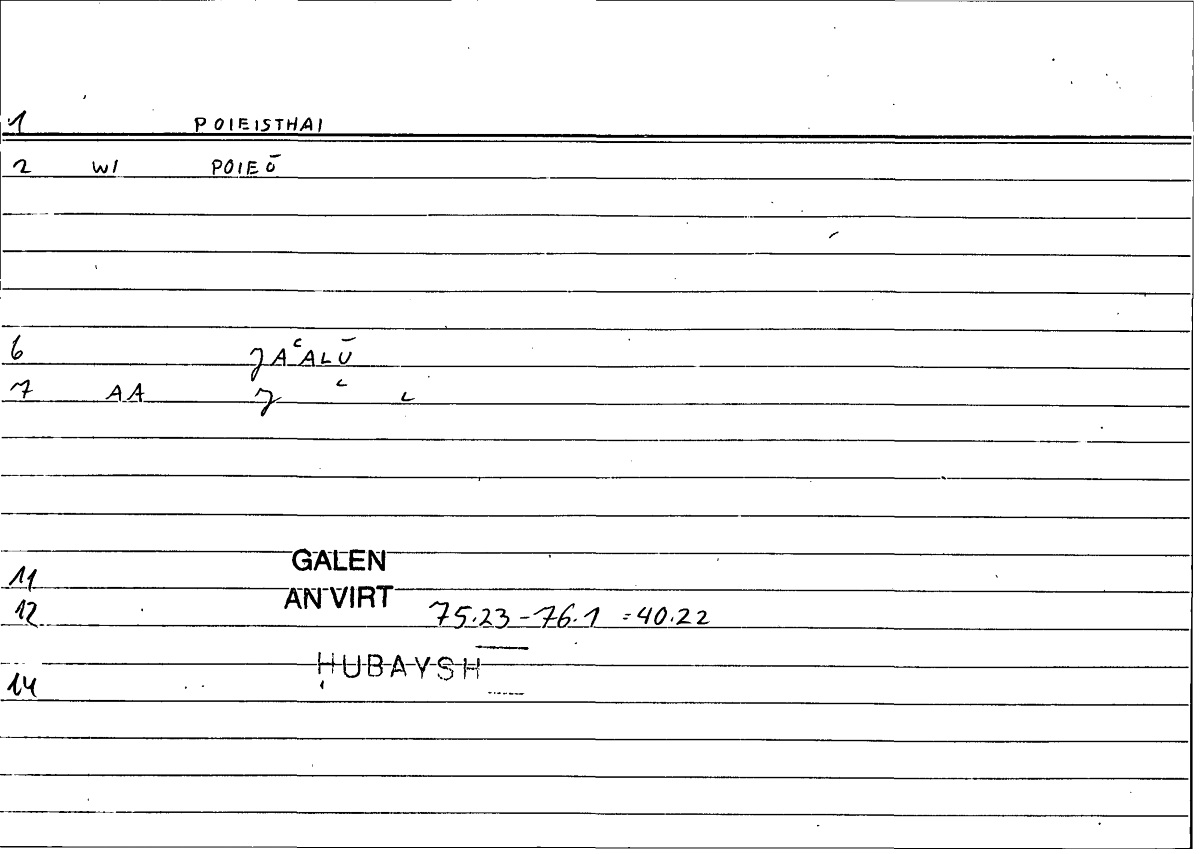 1 POIEISTHAI
2 WI POIEŌ
6 JAʿALŪ
7 AA J ʿ L
11 GALEN
12 AN VIRT 75.23-76.1 =40.22
14 ḤUBAYSH